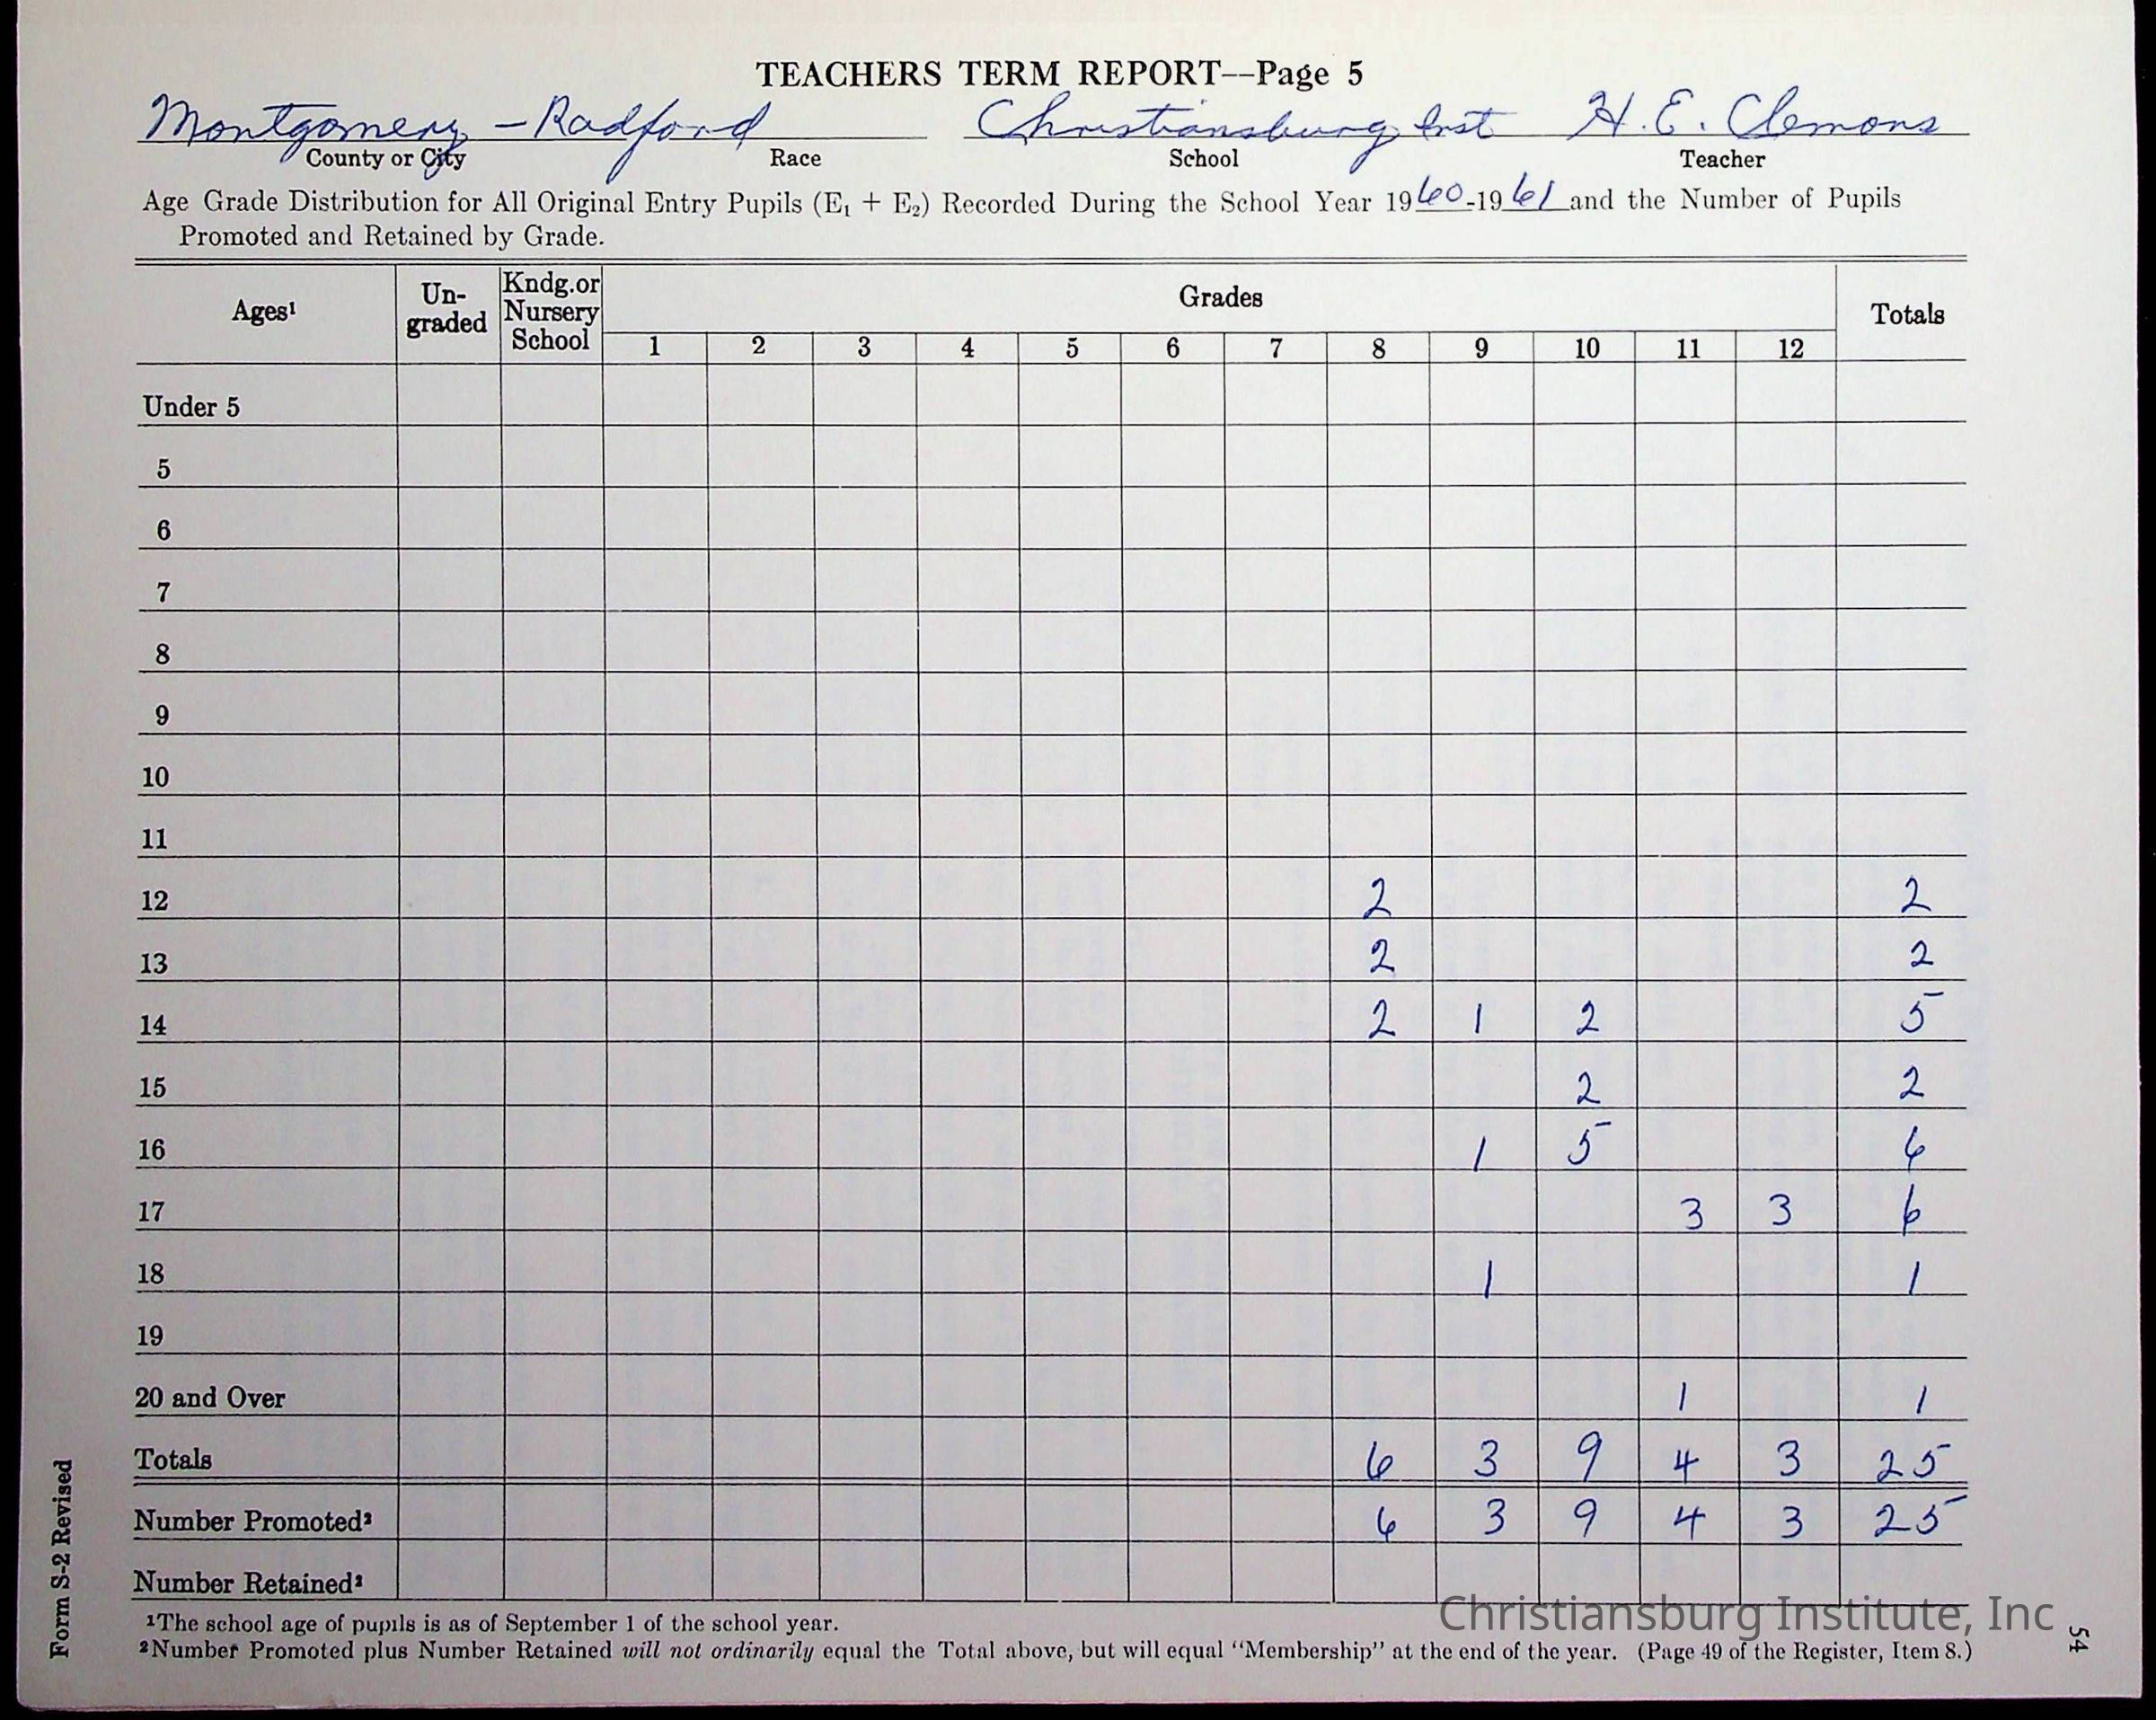 TEACHERS TERM REPORT--Page 5
Montgomery - Radford Christiansburg Inst H. E. Clemons
County or City Race School Teacher
Age Grade Distribution for All Original Entry Pupils (E₁ + E₂) Recorded During the School Year 1960-1961 and the Number of Pupils
Promoted and Retained by Grade.
Ages¹ Un-graded Kndg.or Nursery School Grades Totals
1 2 3 4 5 6 7 8 9 10 11 12
Under 5
5
6
7
8
9
10
11
12 2 2
13 2 2
14 2 1 2 5
15 2 2
16 1 5 6
17 3 3 6
18 1 1
19
20 and Over 1 1
Totals 6 3 9 4 3 25
Number Promoted² 6 3 9 4 3 25
Number Retained²
¹The school age of pupils is as of September 1 of the school year.
²Number Promoted plus Number Retained will not ordinarily equal the Total above, but will equal "Membership" at the end of the year. (Page 49 of the Register, Item 8.)
Form S-2 Revised
54
Christiansburg Institute, Inc